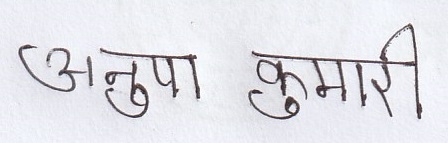 अनुपा कुमारी